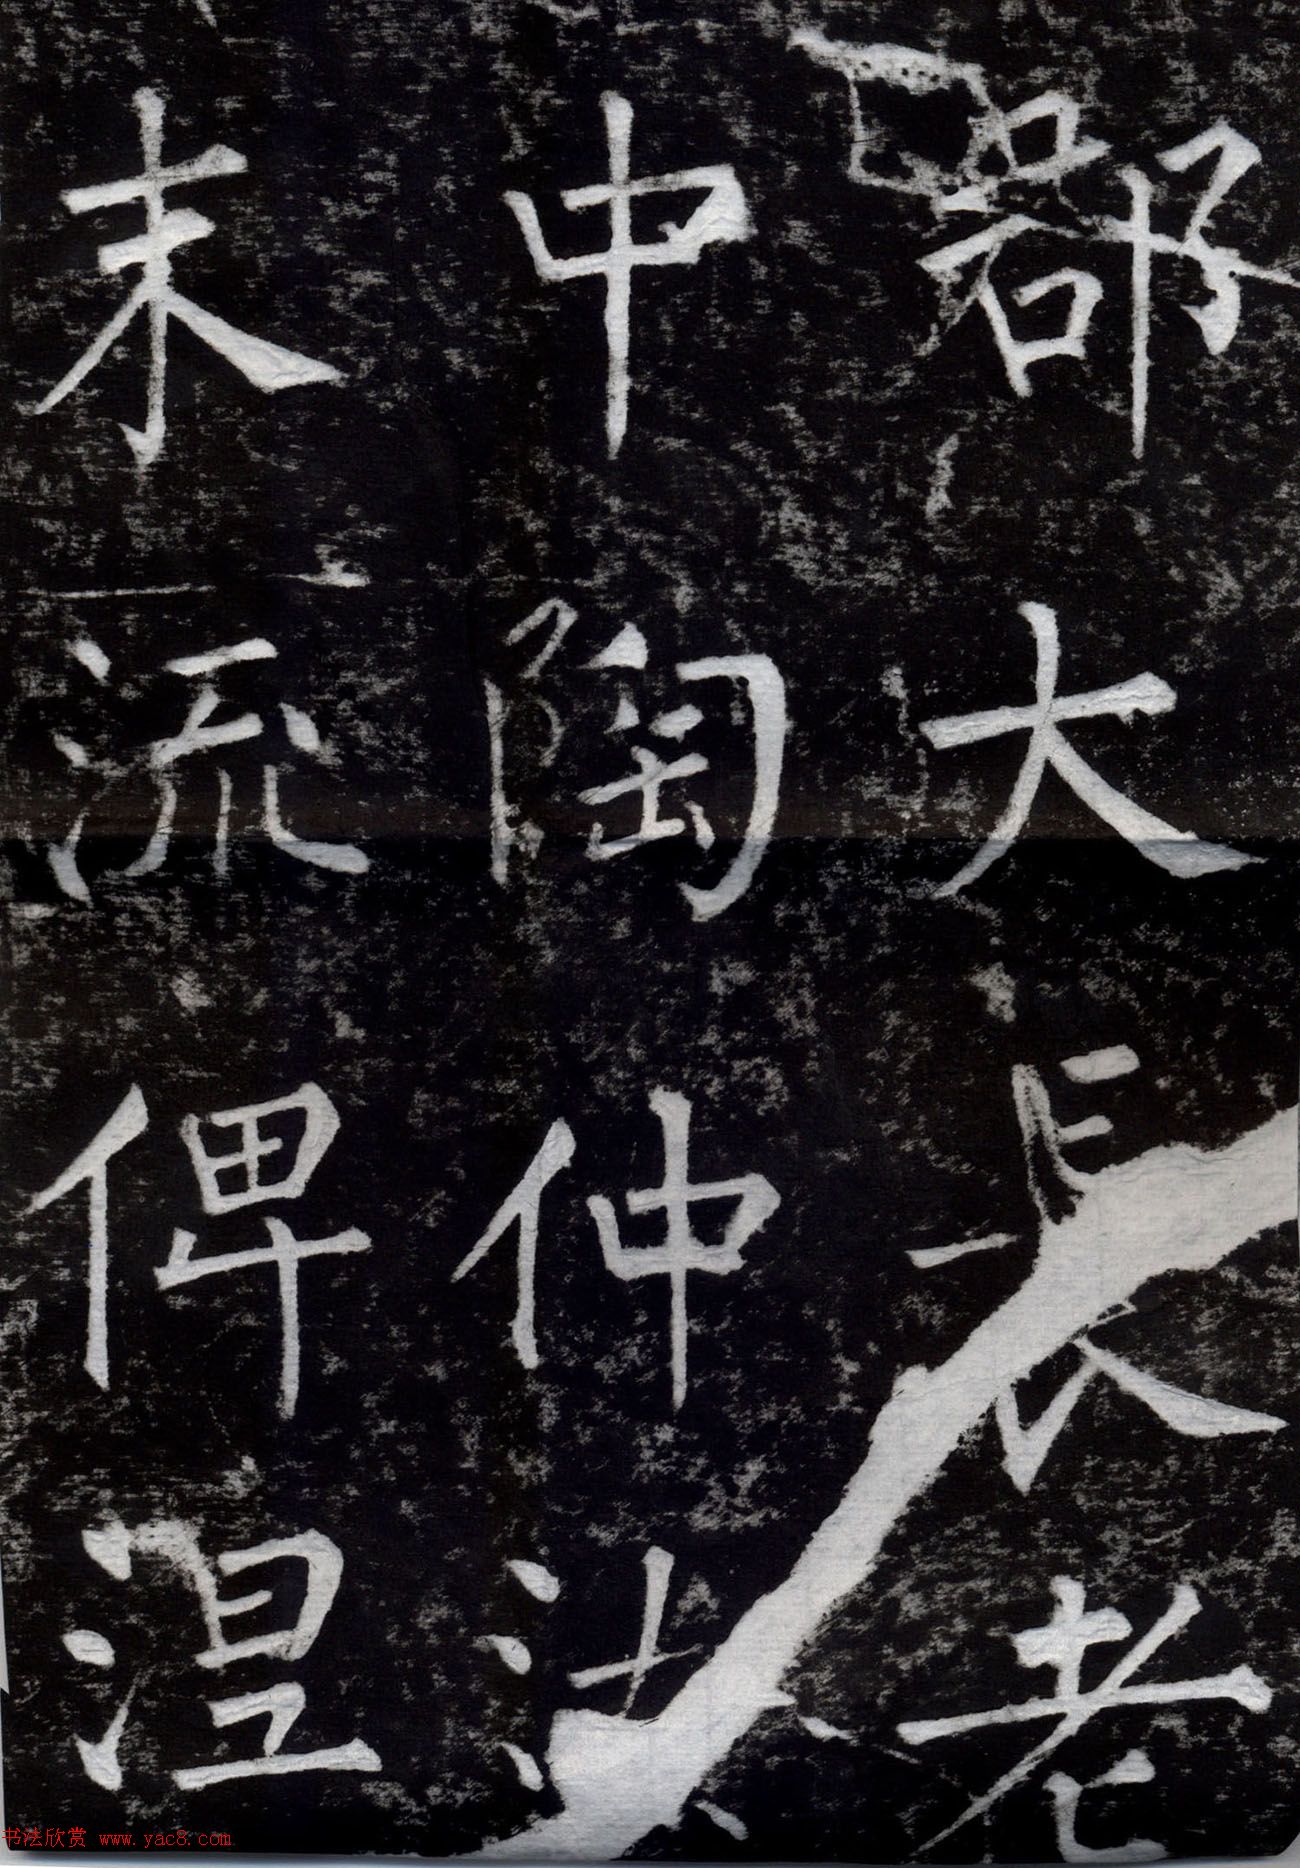 郡大長老
中陶仲法
末流俾涅
书法欣赏 www.yac8.com